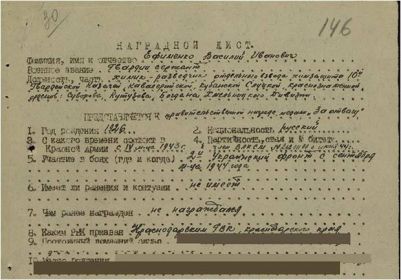 30
146
НАГРАДНОЙ ЛИСТ.
Фамилия, имя и отчество Ефименко Василий Иванович
Военное звание Гвардии сержант
Должность, часть химик-разведчик отдельного взвода химзащиты 10й
Гвардейской Казачей кавалерийской, Кубанской Слуцкой, краснознаменной
орденов: Суворова, Кутузова, Богдана Хмельницкого дивизии.
ПРЕДСТАВЛЯЕТСЯ к правительственной награде медаль „За отвагу"
1. Год рождения 1926.
2. Национальность русский
3. С какого времени состоит в
Красной Армии с 1943 г.
4. Партийность, стаж и № билета
чл. ВЛКСМ
5. Участие в боях (где и когда) 2й Украинский фронт с сентября
1944 года
6. Имеет ли ранения и контузии не имеет
7. Чем ранее награжден не награждался
8. Каким РВК призван Краснодарским ГВК, краснодарского края
9. Постоянный домашний